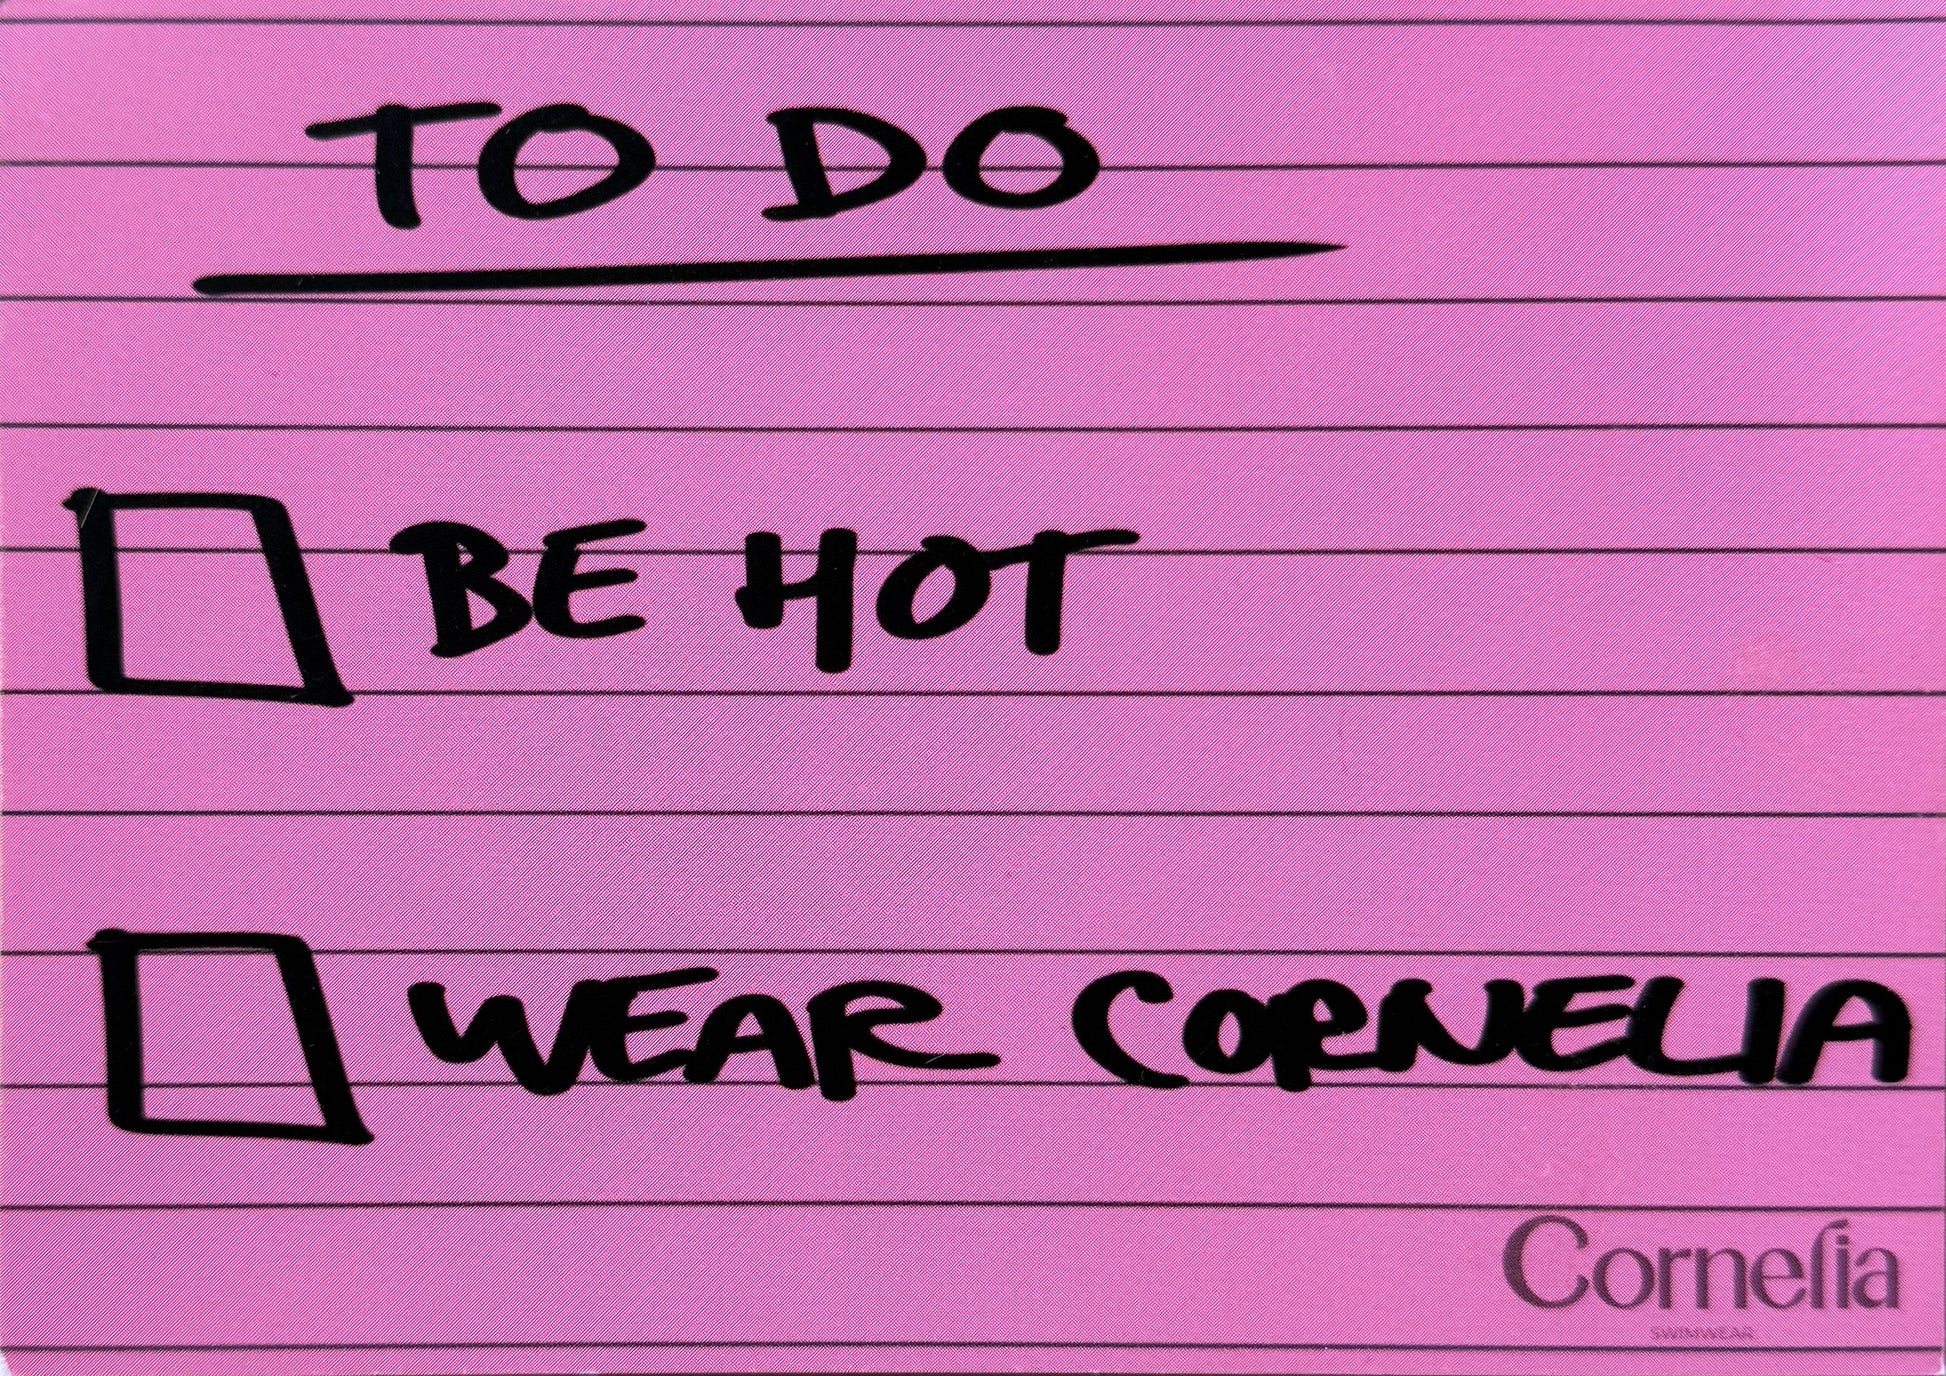 TO DO
BE HOT
WEAR CORNELIA
Cornelia
SWIMWEAR